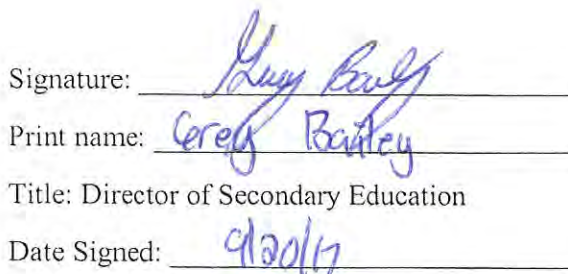 Signature:
Print name: Bailey
Title: Director of Secondary Education
Date Signed: 9/20/17